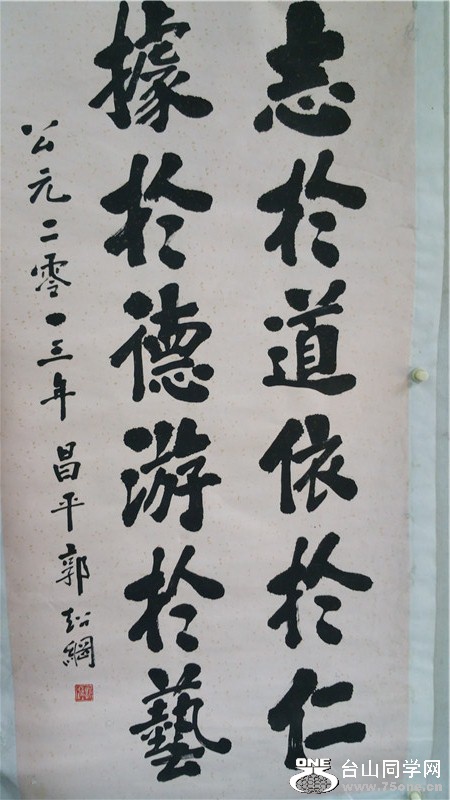 志於道依於仁
據於德游於藝
公元二零一三年昌平郭紹綱
ONE
台山同学网
www.75one.cn